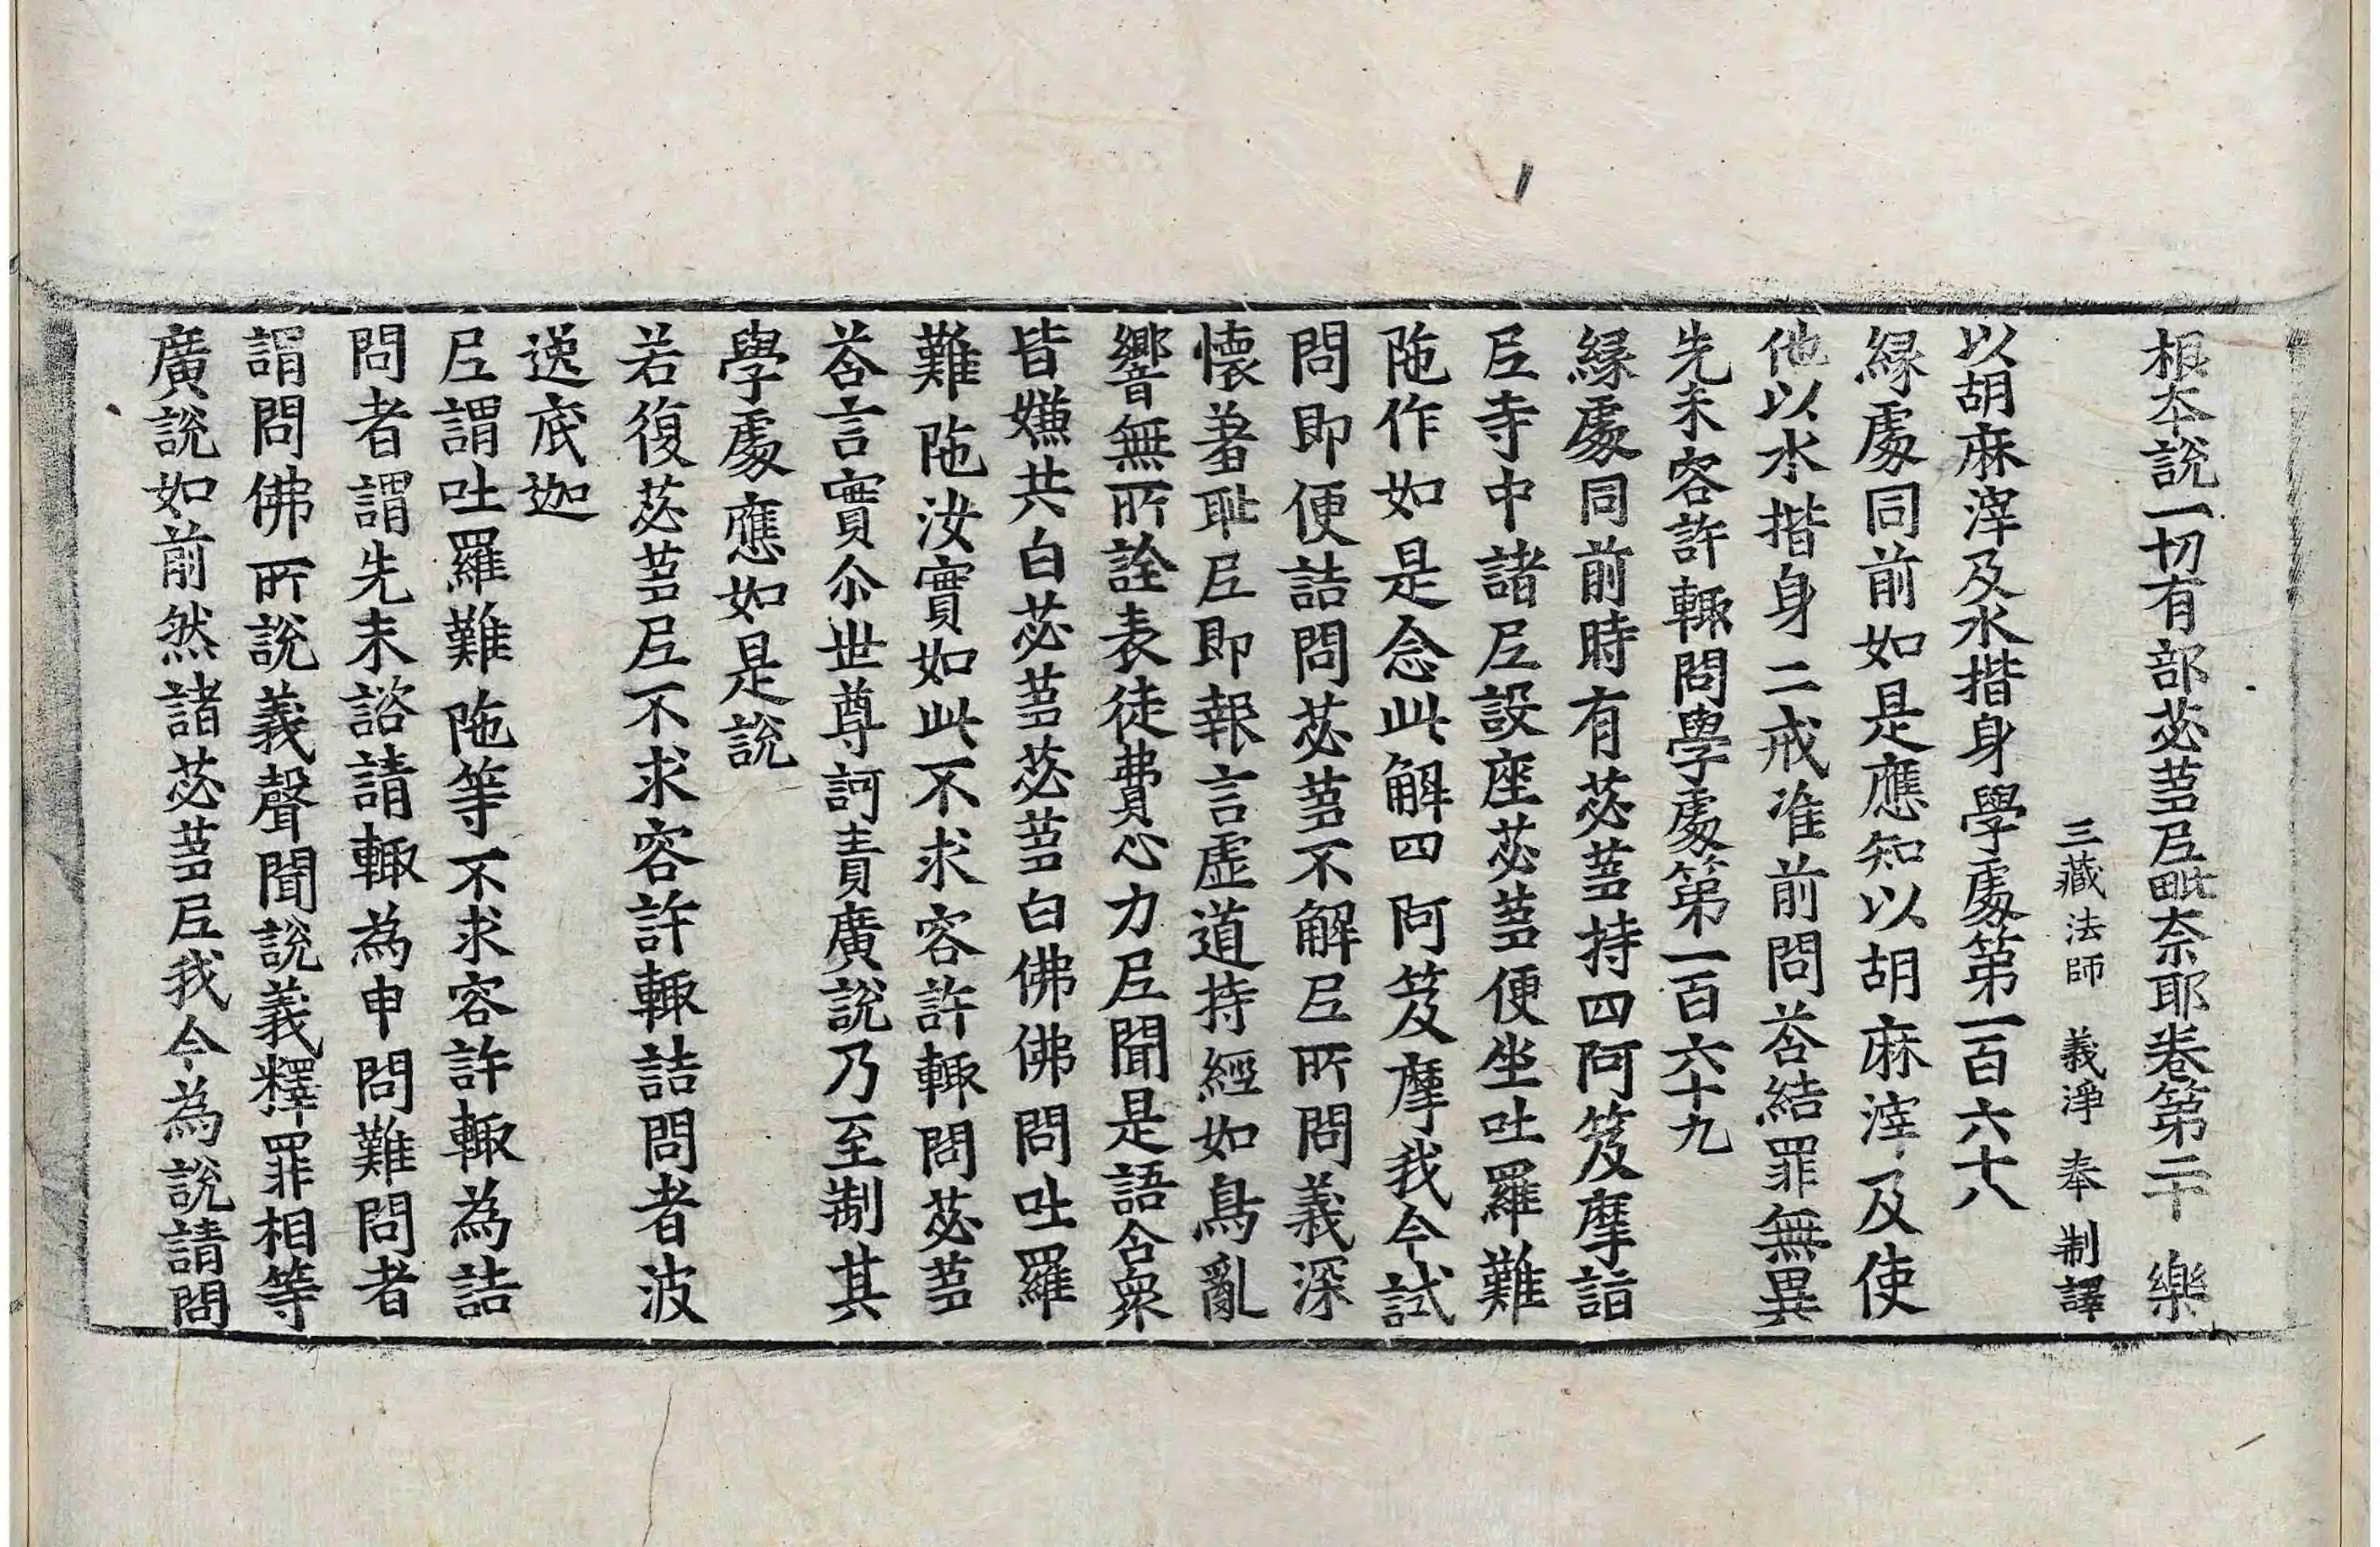 根本說一切有部苾蒭尼毗奈耶卷第二十 樂
三藏法師 義淨 奉 制譯
以胡麻滓及水揩身學處第一百六十八
緣處同前如是應知以胡麻滓及使
他以水揩身二戒准前問荅結罪無異
先未容許輙問學處第一百六十九
緣處同前時有苾蒭持四阿笈摩詣
尼寺中諸尼設座苾蒭便坐吐羅難
陁作如是念此解四阿笈摩我今試
問即便詰問苾蒭不解尼所問義深
懷羞耻尼即報言虛道持經如鳥亂
響無所詮表徒費心力尼聞是語合衆
皆嫌共白苾蒭苾蒭白佛佛問吐羅
難陁汝實如此不求容許輙問苾蒭
荅言實尒世尊訶責廣說乃至制其
學處應如是說
若復苾蒭尼不求容許輙詰問者波
逸底迦
尼謂吐羅難陁等不求容許輙為詰
問者謂先未諮請輙為申問難問者
謂問佛所說義聲聞說義釋罪相等
廣說如前然諸苾蒭尼我今為說請問